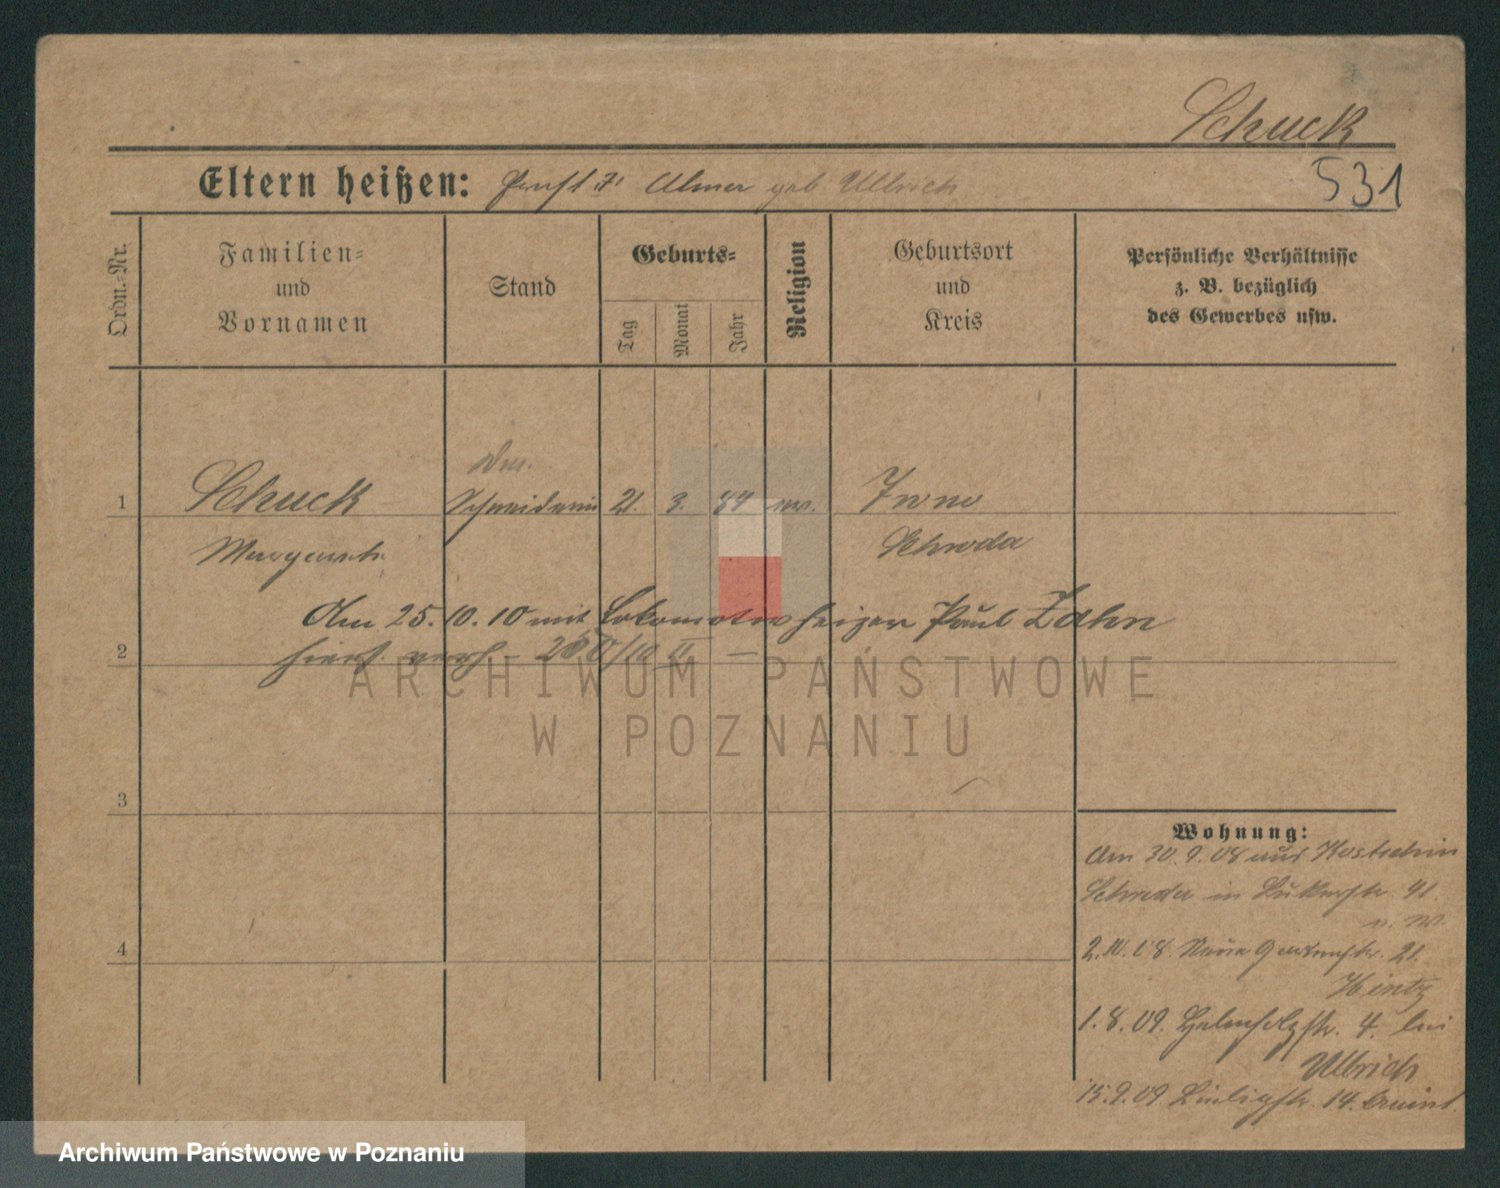 Schuck
531
Eltern heißen: geb Ullrich
Ordn.-Nr.
Familien-
und
Vornamen
Stand
Geburts-
Tag
Monat
Jahr
Religion
Geburtsort
und
Kreis
Persönliche Verhältnisse
z. B. bezüglich
des Gewerbes usw.
1 Schuck Schneiderin 21. 3. 84 ev.
Schroda
Am 25. 10. 10 mit Lokomotivheizer Paul Zahn
2 hiers. verh.
3
4
Wohnung:
Am 30. 9. 08 aus Kostschin
Schroda in 41.
2. 10. 08. Neue Gartenstr. 21.
Hintz
1. 8. 09. 4. bei
Ullrich
15. 9. 09. 14.
ARCHIWUM PAŃSTWOWE
W POZNANIU
Archiwum Państwowe w Poznaniu